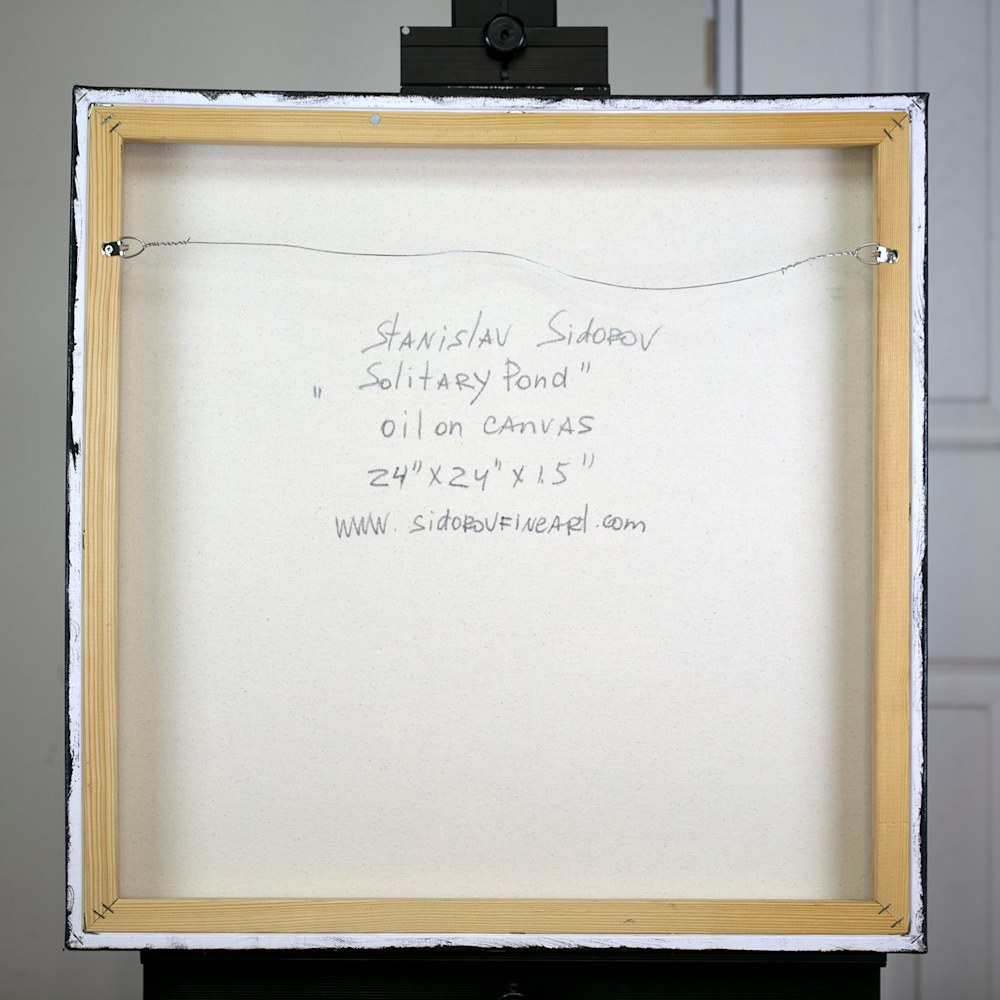 Stanislav Sidorov
" Solitary Pond"
oil on canvas
24" x 24" x 1.5"
www.sidorovfineart.com